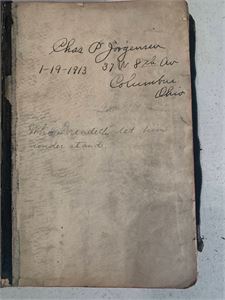 Chas P Jorgensen
1-19-1913 37 W 8th Av
Columbus
Ohio
Who readeth let him
under stand